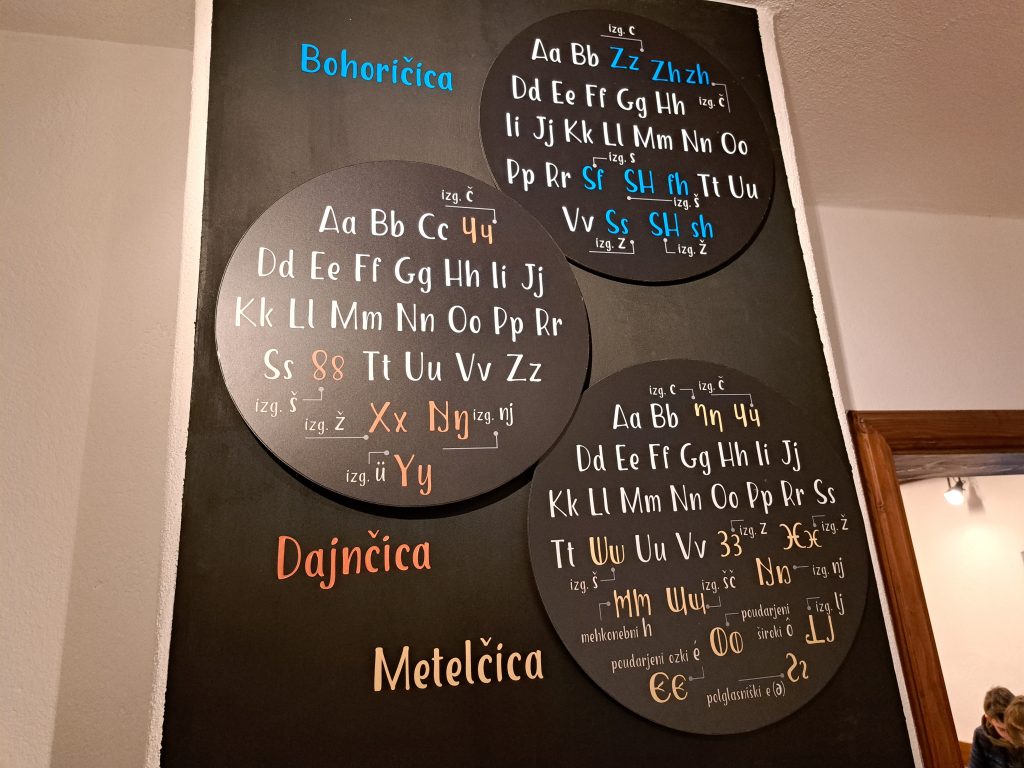 Bohoričica
izg. c
Aa Bb Zz Zh zh
izg. č
Dd Ee Ff Gg Hh
Ii Jj Kk Ll Mm Nn Oo
izg. s
Pp Rr Sſ SH ſh Tt Uu
izg. š
Vv Ss SH sh
izg. z izg. ž
izg. č
Aa Bb Cc Ч ч
Dd Ee Ff Gg Hh Ii Jj
Kk Ll Mm Nn Oo Pp Rr
Ss 88 Tt Uu Vv Zz
izg. š
izg. ž Xx Ŋŋ izg. nj
izg. ü Yy
Dajnčica
izg. c izg. č
Aa Bb Ꞑꞑ Чч
Dd Ee Ff Gg Hh Ii Jj
Kk Ll Mm Nn Oo Pp Rr Ss
izg. z izg. ž
Tt Ɯɯ Uu Vv 33 Ӿӿ
izg. š izg. šč izg. nj
mehkonebni h
poudarjeni široki ô
izg. lj
poudarjeni ozki é
polglasniški e (ə)
Metelčica